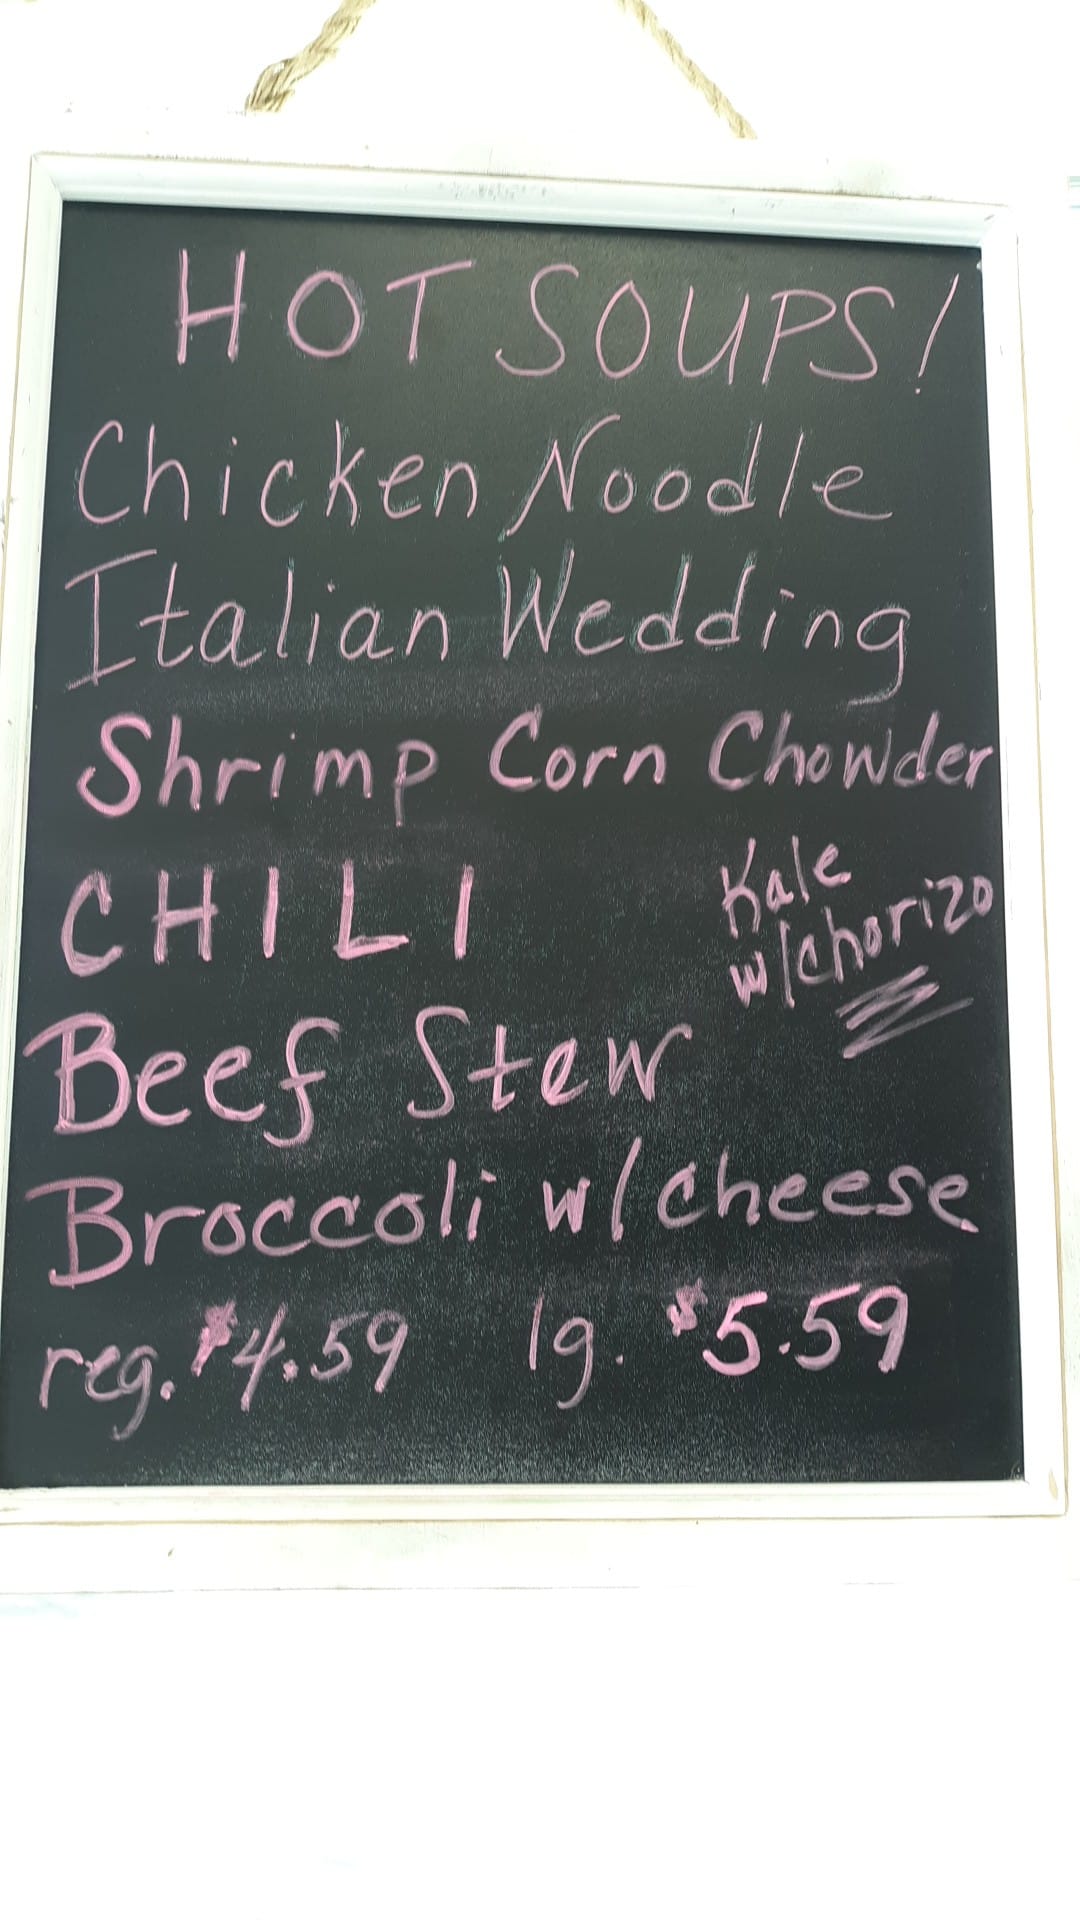 HOT SOUPS!
Chicken Noodle
Italian Wedding
Shrimp Corn Chowder
CHILI
Kale
w/chorizo
Beef Stew
Broccoli w/cheese
reg. $4.59 lg. $5.59